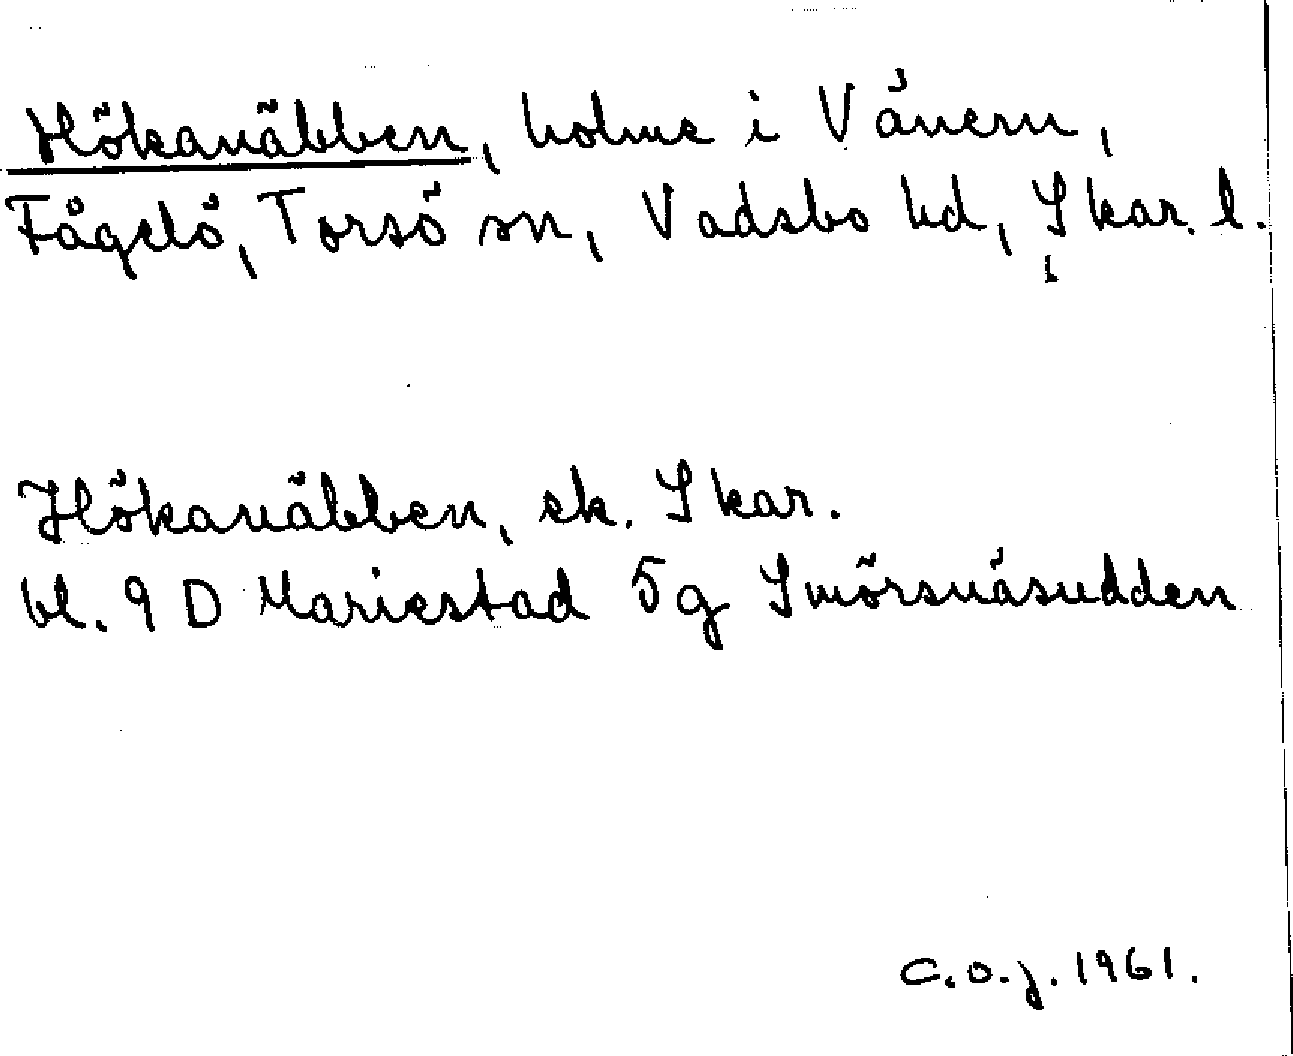 Hökanäbben, holme i Vänern,
Fågelö, Torsö sn, Vadsbo hd, Skar. l.
Hökanäbben, ek. Skar.
bl. 9 D Mariestad 5g Smörsnäsudden
C.O.J. 1961.